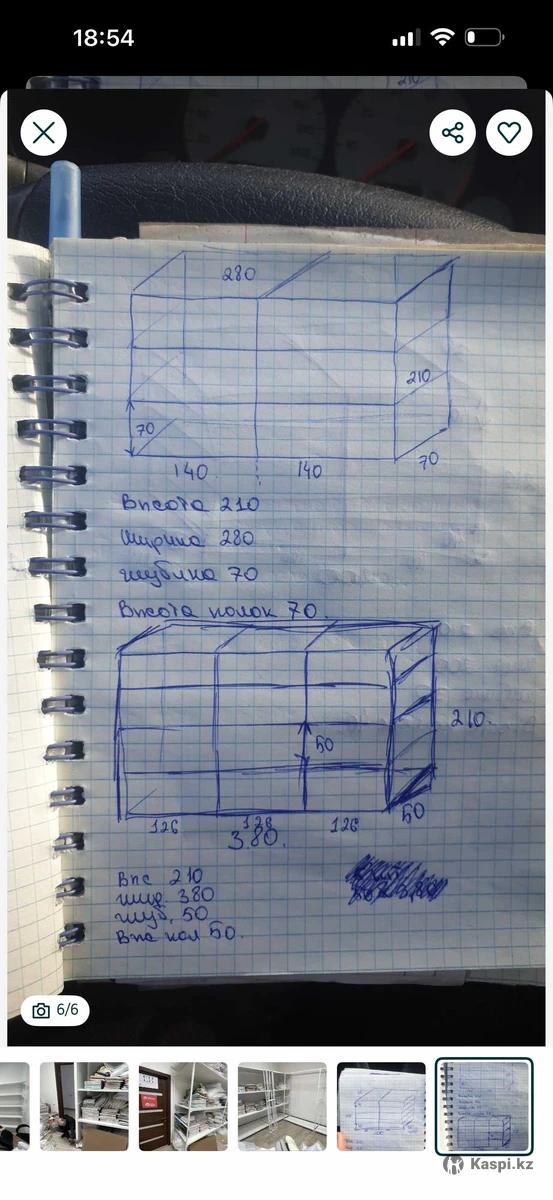 18:54
210
280
210
70
140
140
70
Высота 210
Ширина 280
глубина 70
Высота полок 70.
210.
50
126
126
126
50
380.
Выс 210
шир. 380
глуб. 50
Выс пол 50.
6/6
Kaspi.kz